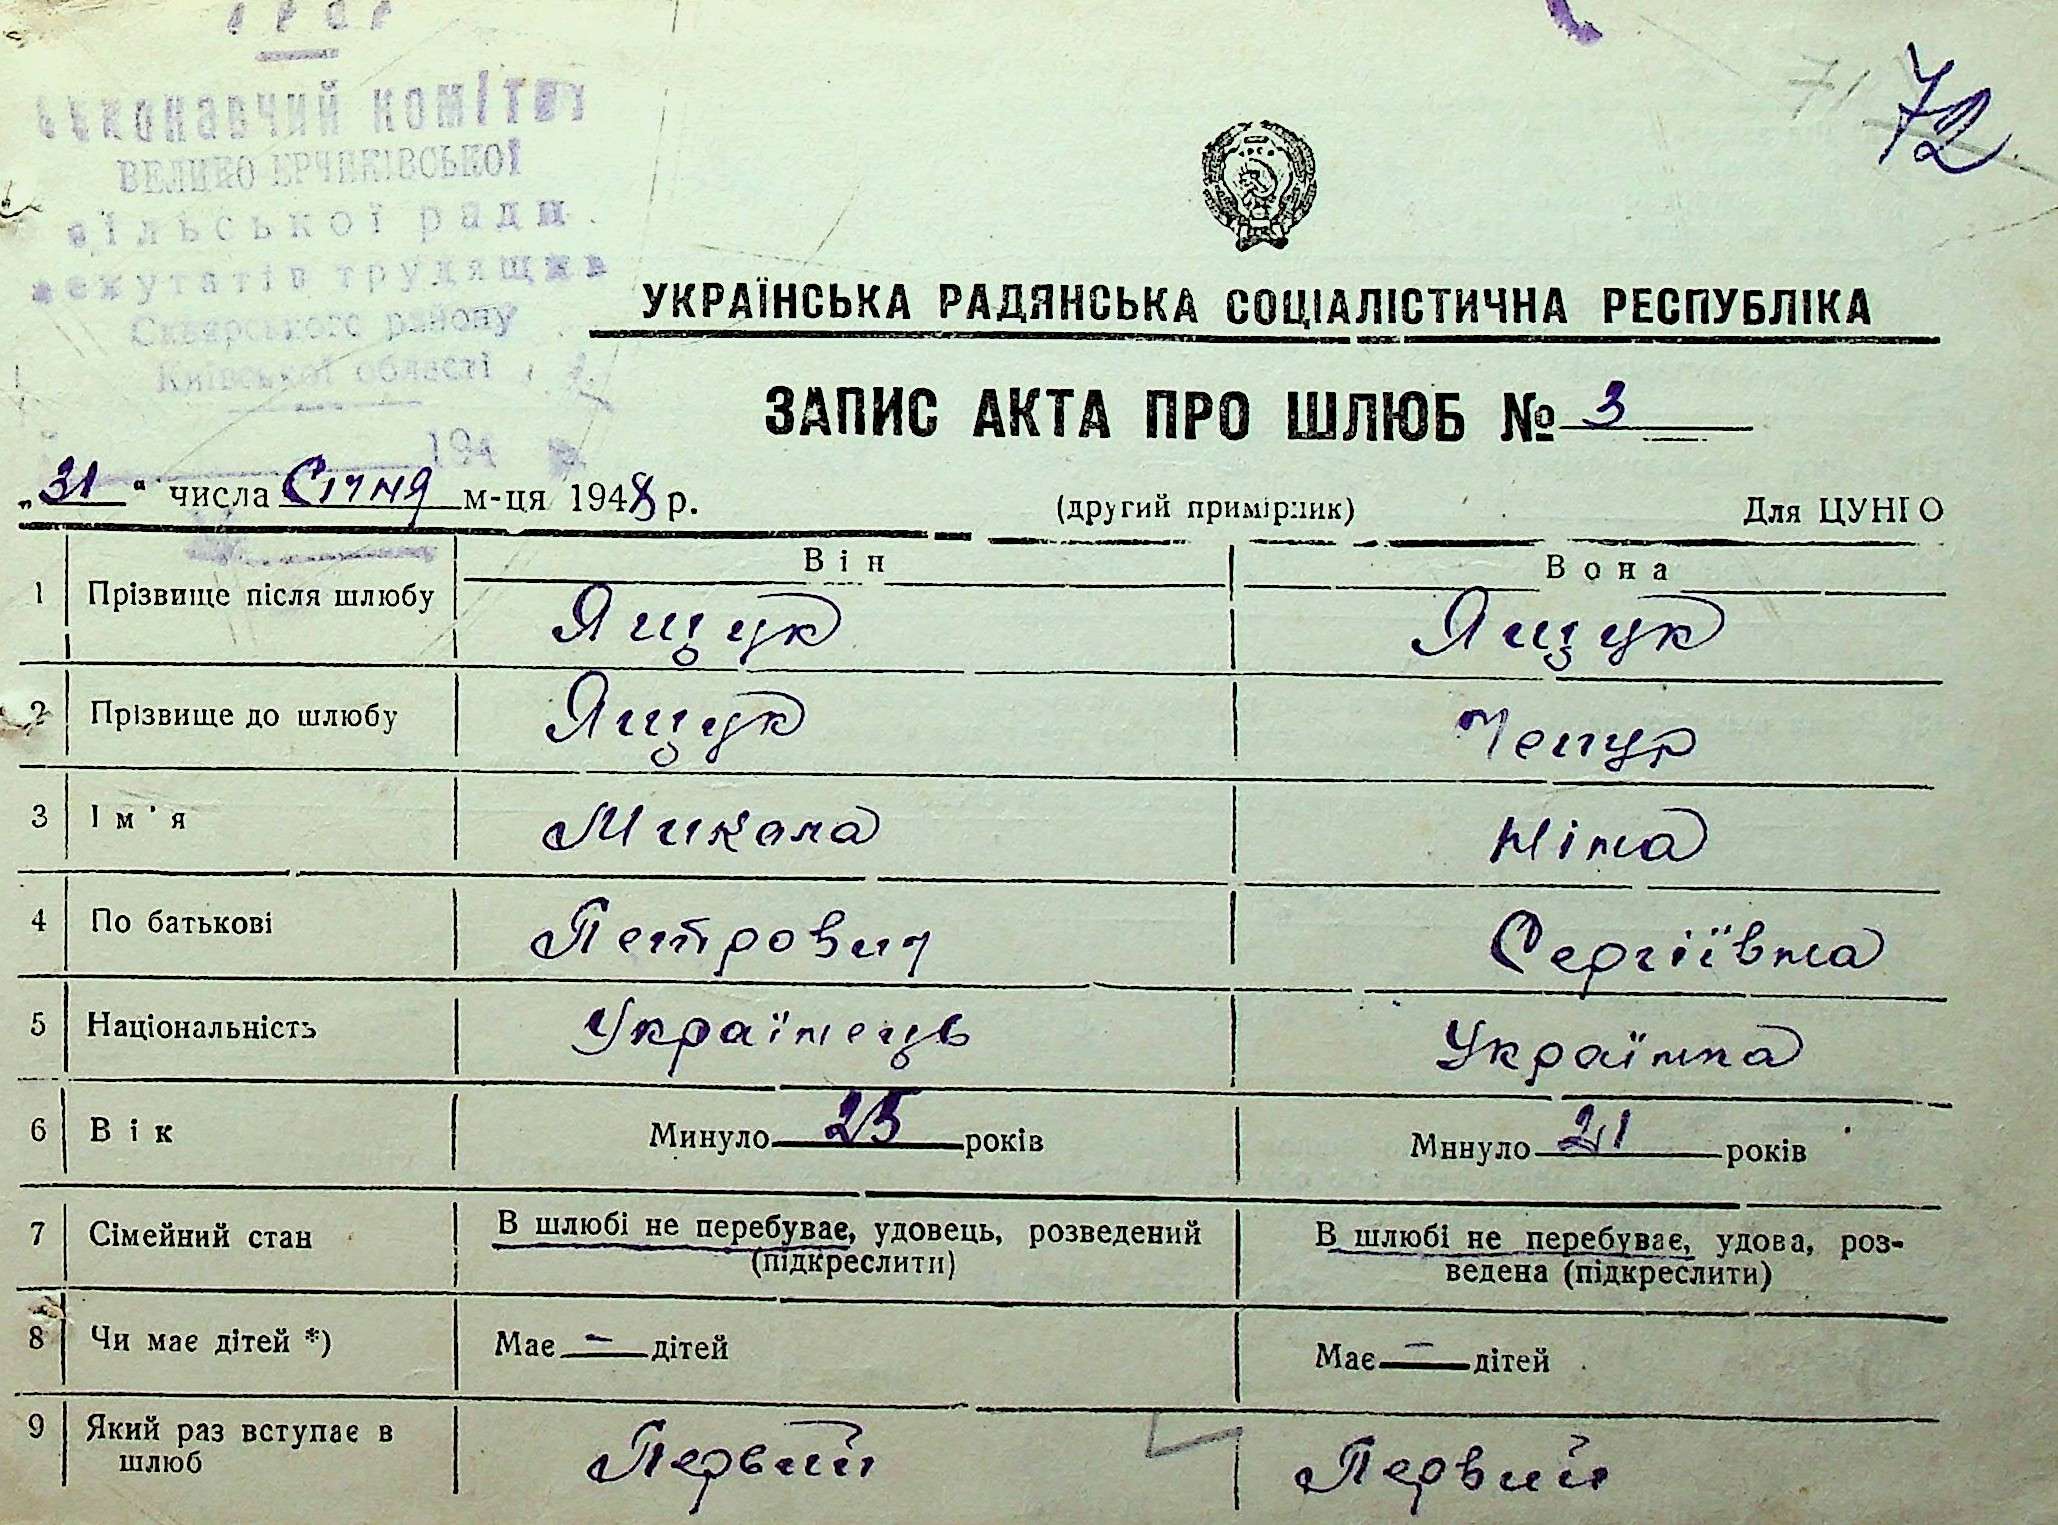 УРСР
Виконавчий комітет
ВЕЛИКО ЕРЧИКІВСЬКОЇ
сільської ради
депутатів трудящих
Сквирського району
Київської області
194
71 72
УКРАЇНСЬКА РАДЯНСЬКА СОЦІАЛІСТИЧНА РЕСПУБЛІКА
ЗАПИС АКТА ПРО ШЛЮБ № 3
„31“ числа Січня м-ця 1948 р. (другий примірник) Для ЦУНГО
Він Вона
1 Прізвище після шлюбу Ящук Ящук
2 Прізвище до шлюбу Ящук Чепур
3 Ім'я Микола Ніна
4 По батькові Петрович Сергіївна
5 Національність Українець Українка
6 Вік Минуло 25 років Минуло 21 років
7 Сімейний стан В шлюбі не перебуває, удовець, розведений В шлюбі не перебуває, удова, роз-
(підкреслити) ведена (підкреслити)
8 Чи має дітей *) Має — дітей Має — дітей
9 Який раз вступає в Первий Первий
шлюб